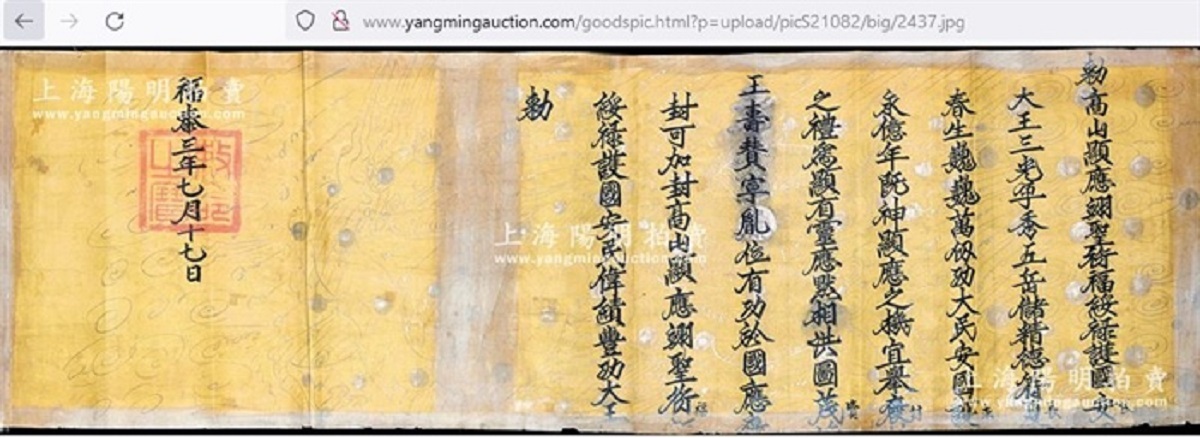 www.yangmingauction.com/goodspic.html?p=upload/picS21082/big/2437.jpg
勅高山顯應翊聖衍福綏祿護國安
大王三光孕秀五岳儲精德
春生巍巍萬仞功大民安國
永億年既神顯應之機宜舉襃
之禮爲顯有靈應默相洪圖茂
王壽贊寧胤位有功於國應
封可加封高山顯應翊聖衍
綏祿護國安民偉績豐功大王
勅
福泰三年七月十七日
上海陽明拍賣
www.yangmingauction.com
上海陽明拍賣
www.yangmingauction.com
上海陽明拍賣
www.yangmingauction.com